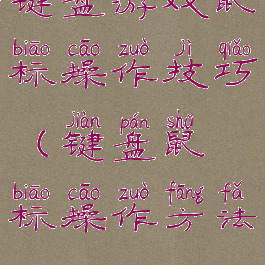 键盘游戏鼠
biāo cāo zuò jì qiǎo
标操作技巧
jiàn pán shǔ
(键盘鼠
biāo cāo zuò fāng fǎ
标操作方法